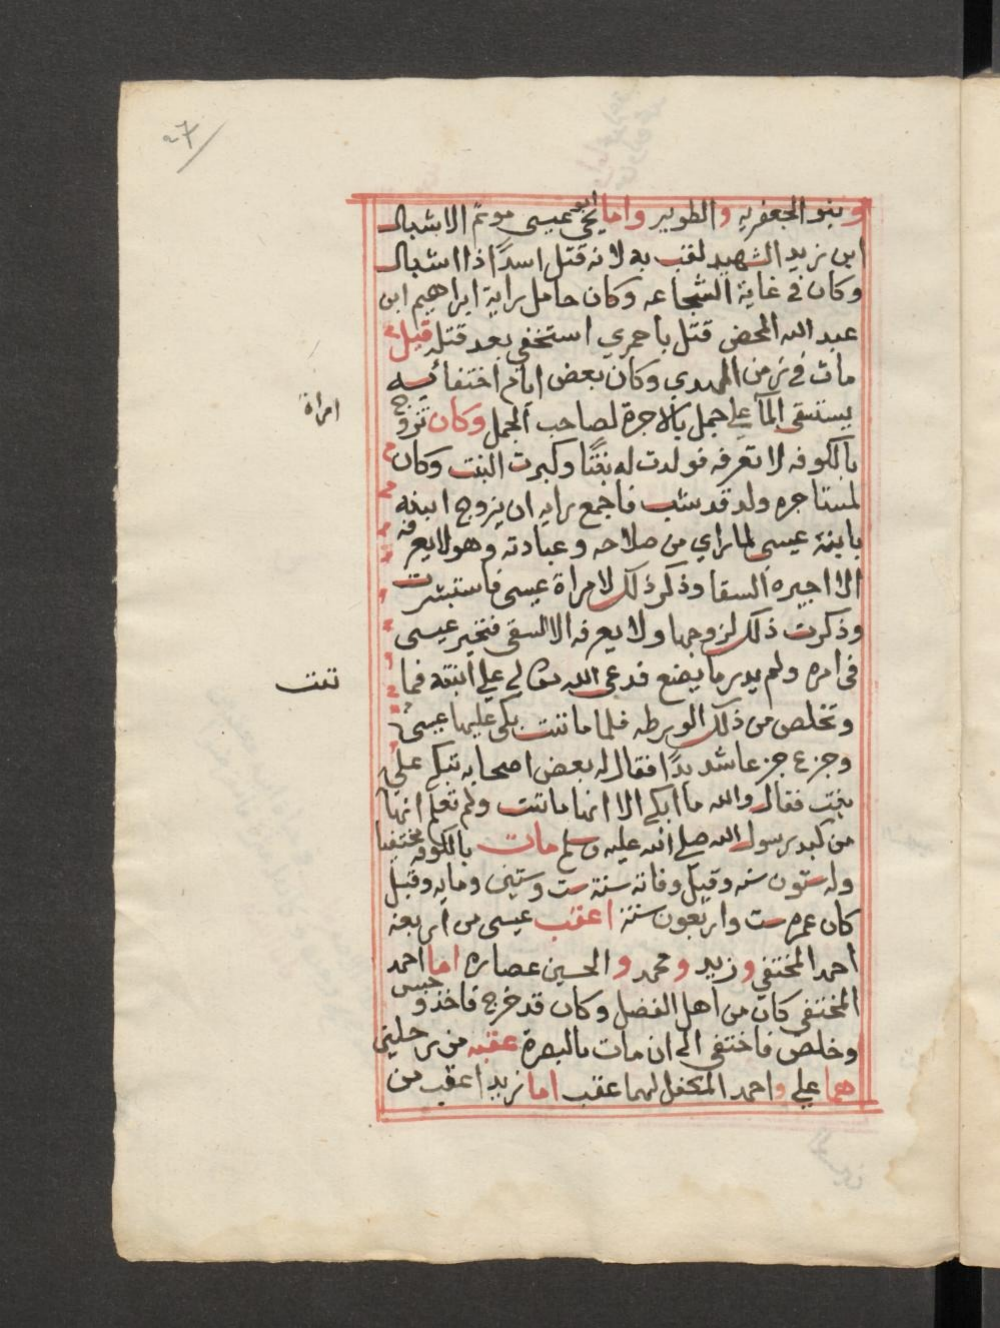 27
وبنو الجعفريه والطوير واما ابو يحيى عيسى موتم الاشبال
ابن زيد الشهيد لقب به لانه قتل اسدًا ذا اشبال
وكان في غاية الشجاعه وكان حامل راية ابراهيم ابن
عبد الله المحض قتل باحمري استخفي بعد قتله قيل
مات في زمن المهدي وكان بعض ايام اختفائيه
يستقى المآ علي جمل بالاجرة لصاحب الجمل وكان تزوج
امراة
بالكوفه لا تعرفه فولدت له بنتًا وكبرت البنت وكان
لمستاجره ولد قد شب فاجمع رايه ان يزوج ابنه
بابنة عيسى لما راي من صلاحه وعبادته وهو لا يعرفه
الا اجيره السقا وذكر ذلك لامراة عيسى فاستبشرت
وذكرت ذلك لزوجها ولا يعرفه الا السقى فتحير عيسى
فى امره ولم يدر ما يضع فدعى الله تعالي علي ابنته فما
تت
وتخلص من ذلك الورطه فلما ماتت بكى عليها عيسى
وجزع جزعا شديدًا فقال له بعض اصحابه تبكي على
بنت فقال والله ما ابكي الا انها ماتت ولم تعلم انها
من كبد رسول الله صلي الله عليه وسلم مات بالكوفه مختفيا
وله ستون سنه وقيل وفاته سنة ست وستين ومايه وقيل
كان عمره ست واربعون سنة اعقب عيسى من اربعة
احمد المختفي وزيد ومحمد والحسين عصاره اما احمد
المختفى كان من اهل الفضل وكان قد خرج فاخذ وحبس
وخلص فاختفى الى ان مات بالبصرة عقبه من رجلين
هما علي واحمد المكفل لهما عقب اما زيد اعقب من